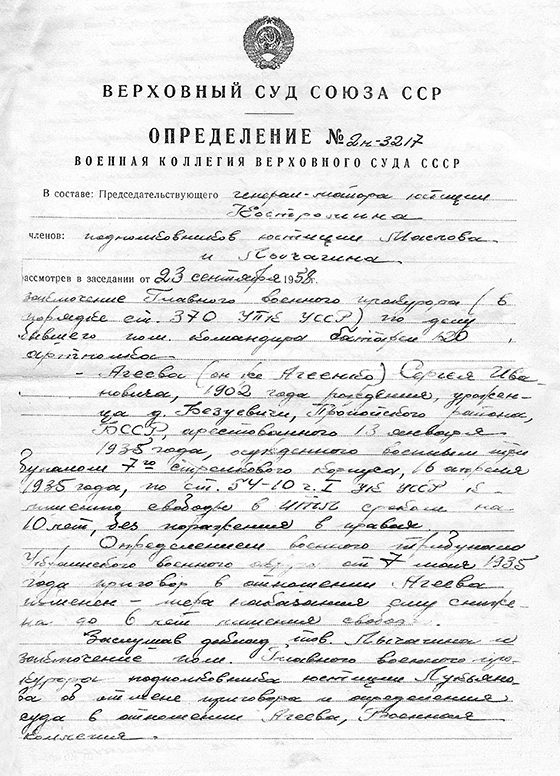 ВЕРХОВНЫЙ СУД СОЮЗА ССР
ОПРЕДЕЛЕНИЕ № 2н-3217
ВОЕННАЯ КОЛЛЕГИЯ ВЕРХОВНОГО СУДА СССР
В составе: Председательствующего генерал-майора юстиции
Костромина
членов: подполковников юстиции Маслова
и Лычагина.
рассмотрев в заседании от 23 сентября 1958 г.
заключение Главного военного прокурора (в
порядке ст. 370 УПК УССР) по делу
бывшего пом. командира батареи
артполка
- Агеева (он же Агеенко) Сергея Ива-
новича, 1902 года рождения, урожен-
ца д. Безуевичи, Пропойского района,
БССР, арестованного 13 января
1935 года, осужденного военным три-
буналом 7го стрелкового корпуса, 16 апреля
1935 года, по ст. 54-10 ч. I УК УССР к
лишению свободы в ИТЛ сроком на
10 лет, без поражения в правах.
Определением военного трибунала
Украинского военного округа от 7 мая 1935
года приговор в отношении Агеева
изменен - мера наказания ему сниже-
на до 6 лет лишения свободы.
Заслушав доклад тов. Лычагина и
заключение пом. Главного военного про-
курора подполковника юстиции Лукьяно-
ва об отмене приговора и определения
суда в отношении Агеева, Военная
коллегия.